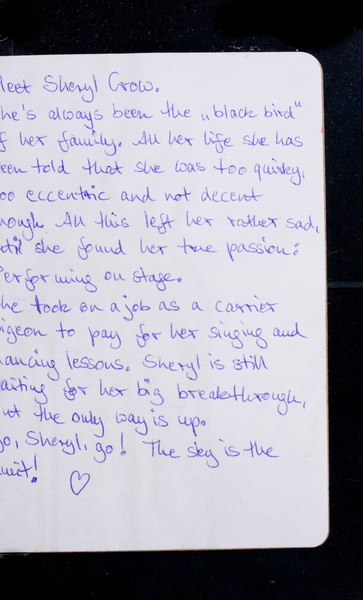 leet Sheryl Crow.
he's always been the „black bird"
f her family. All her life she has
een told that she was too quirky,
oo eccentric and not decent
nough. All this left her rather sad,
ntil she found her true passion:
Performing on stage.
he took on a job as a carrier
igeon to pay for her singing and
ancing lessons. Sheryl is still
aiting for her big breakthrough,
ut the only way is up.
go, Sheryl, go! The sky is the
imit!